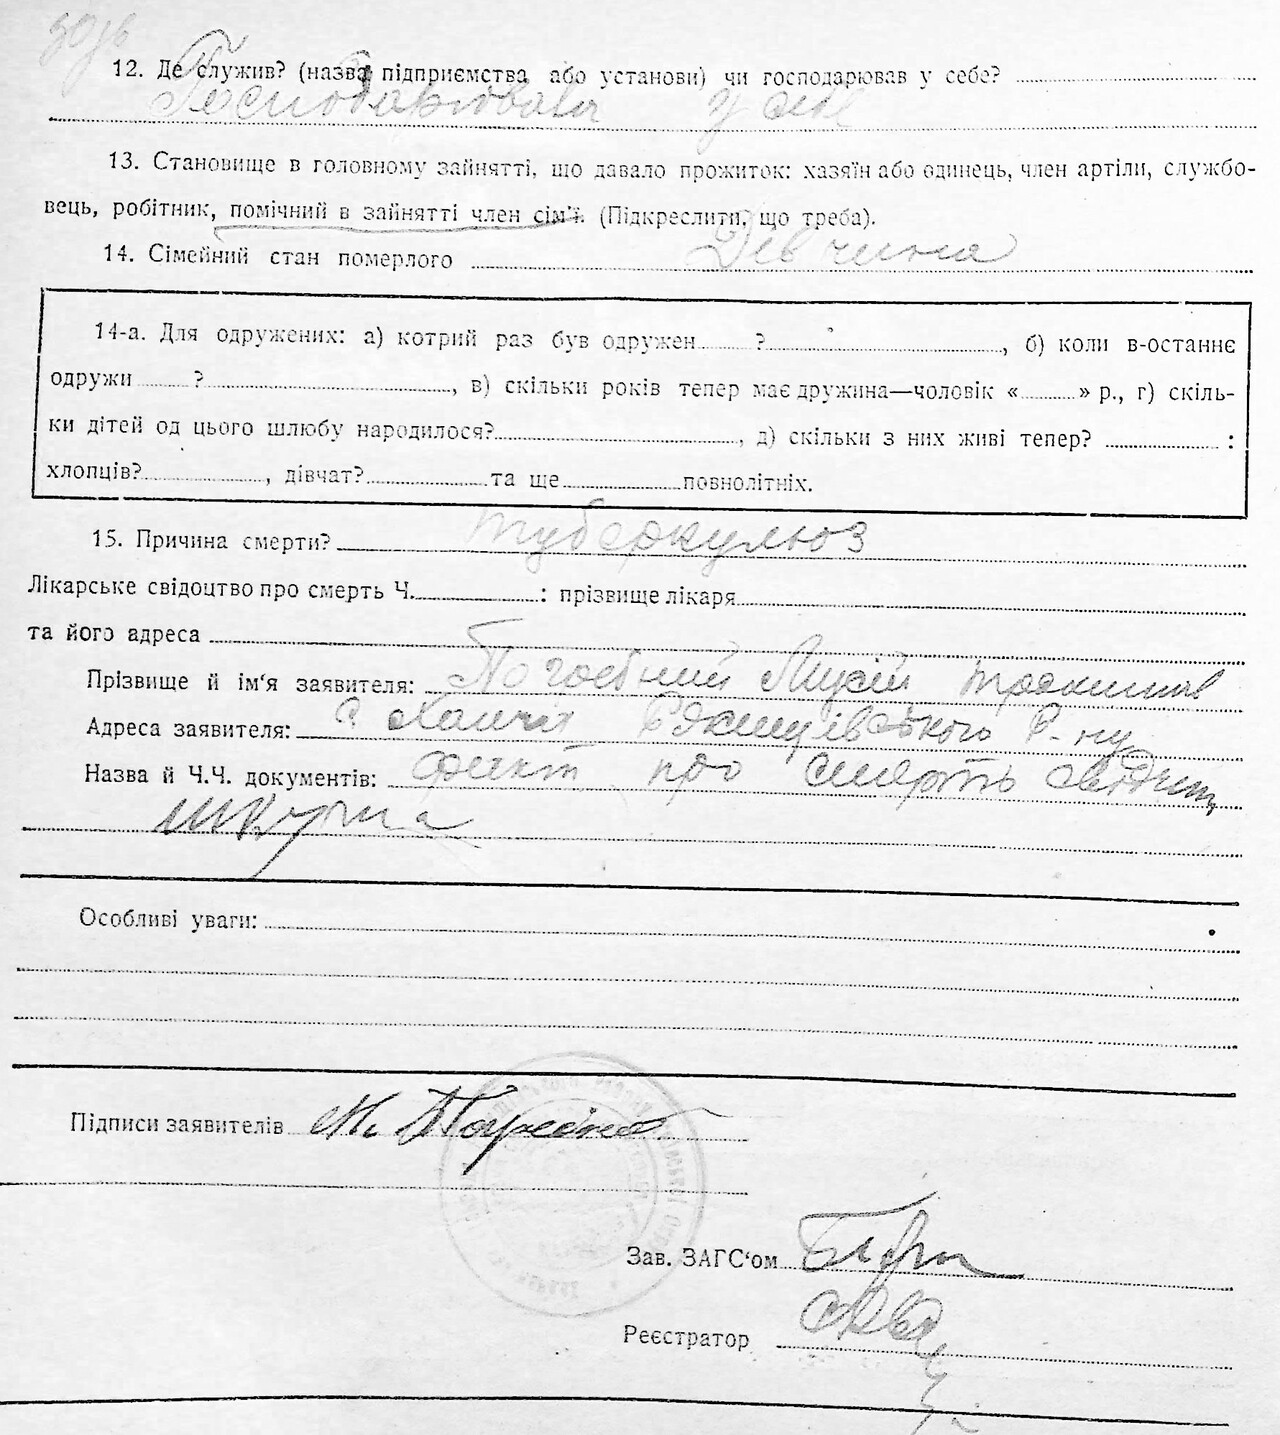 12. Де служив? (назва підприємства або установи) чи господарював у себе?
Господарювала у себе
13. Становище в головному зайнятті, що давало прожиток: хазяїн або одинець, член артіли, службо-
вець, робітник, помічний в зайнятті член сім'ї. (Підкреслити, що треба).
14. Сімейний стан померлого Дівчина
14-а. Для одружених: а) котрий раз був одружен ? , б) коли в-останнє
одружи ? , в) скільки років тепер має дружина—чоловік « » р., г) скіль-
ки дітей од цього шлюбу народилося? , д) скільки з них живі тепер? :
хлопців? , дівчат? та ще повнолітніх.
15. Причина смерти? туберкульоз
Лікарське свідоцтво про смерть Ч. : прізвище лікаря
та його адреса
Прізвище й ім'я заявителя: Погребний Мусій
Адреса заявителя: с. р-ну
Назва й Ч.Ч. документів: про смерть
Особливі уваги:
Підписи заявителів М. Погребний
Зав. ЗАГС'ом
Реєстратор